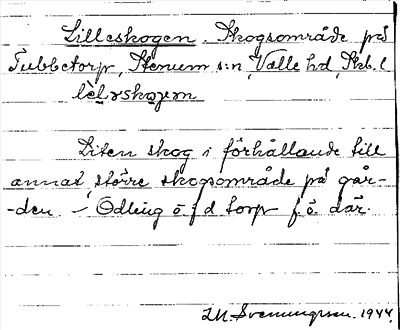 Lilleskogen. Skogsområde på
Tubbetorp, Stenum s:n, Valle hd, Skb. l
lìləskogəm
Liten skog i förhållande till
annat större skogsområde på går-
-den. - Odling å f d torp f. ö. där.
M. Svenungsson. 1944.